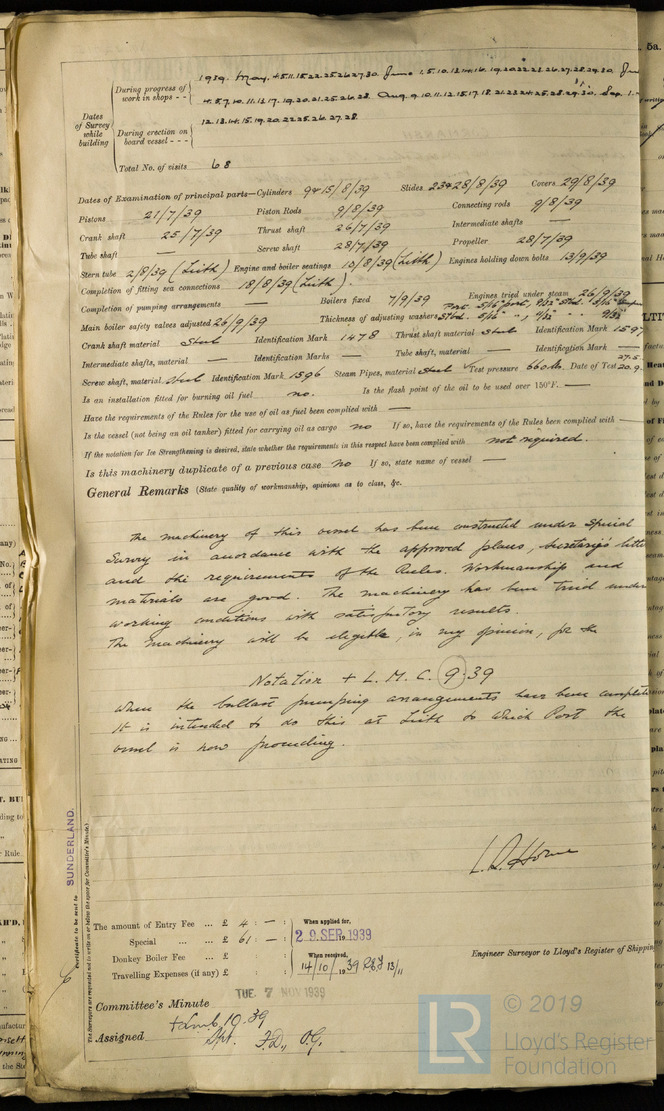 1939. May. 4.5.11.15.22.25.26.27.30. June 1.5.10.13.14.16.19.20.22.23.26.27.28.29.30.
During progress of work in shops - -
4.5.7.10.11.13.17.19.20.21.25.26.28. Aug. 9.10.11.12.15.17.18.21.23.24.25.28.29.30. Sep. 1.
Dates of Survey while building
During erection on board vessel - - -
12.13.14.15.19.20.22.25.26.27.28.
Total No. of visits 68
Dates of Examination of principal parts—Cylinders 9 & 15/8/39 Slides 23 & 28/8/39 Covers 29/8/39
Pistons 21/7/39 Piston Rods 9/8/39 Connecting rods 9/8/39
Crank shaft 25/7/39 Thrust shaft 26/7/39 Intermediate shafts —
Tube shaft — Screw shaft 28/7/39 Propeller 28/7/39
Stern tube 2/8/39 (Leith) Engine and boiler seatings 10/8/39 (Leith) Engines holding down bolts 13/9/39
Completion of fitting sea connections 18/8/39 (Leith).
Completion of pumping arrangements — Boilers fixed 7/9/39 Engines tried under steam 26/9/39
Main boiler safety valves adjusted 26/9/39 Thickness of adjusting washers
Crank shaft material Steel Identification Mark 1478 Thrust shaft material Steel Identification Mark 1597
Intermediate shafts, material — Identification Marks — Tube shaft, material — Identification Mark —
Screw shaft, material Steel Identification Mark 1596 Steam Pipes, material Steel Test pressure 660 lbs. Date of Test 27.5. 20.9.
Is an installation fitted for burning oil fuel no. Is the flash point of the oil to be used over 150°F. —
Have the requirements of the Rules for the use of oil as fuel been complied with —
Is the vessel (not being an oil tanker) fitted for carrying oil as cargo no If so, have the requirements of the Rules been complied with —
If the notation for Ice Strengthening is desired, state whether the requirements in this respect have been complied with not required.
Is this machinery duplicate of a previous case no If so, state name of vessel —
General Remarks (State quality of workmanship, opinions as to class, &c.
The machinery of this vessel has been constructed under Special
Survey in accordance with the approved plans, Secretary's letter
and the requirements of the Rules. Workmanship and
materials are good. The machinery has been tried under
working conditions with satisfactory results.
The machinery will be eligible, in my opinion, for the
Notation + L.M.C. 9.39
when the ballast pumping arrangements have been complete
It is intended to do this at Leith to which Port the
vessel is now proceeding.
L. D. Horne
Engineer Surveyor to Lloyd's Register of Shipping
SUNDERLAND.
Certificate to be sent to
(The Surveyors are requested not to write on or below the space for Committee's Minute.)
The amount of Entry Fee ... £ 4 : — :
When applied for,
Special ... ... £ 61 : — :
29 SEP 1939
Donkey Boiler Fee ... £ : :
When received,
Travelling Expenses (if any) £ : :
14/10/1939
13/11
TUE. 7 NOV 1939
Committee's Minute
Assigned + Lmb 10.39
Spt. F.D., O.G.
© 2019
LR
Lloyd's Register
Foundation